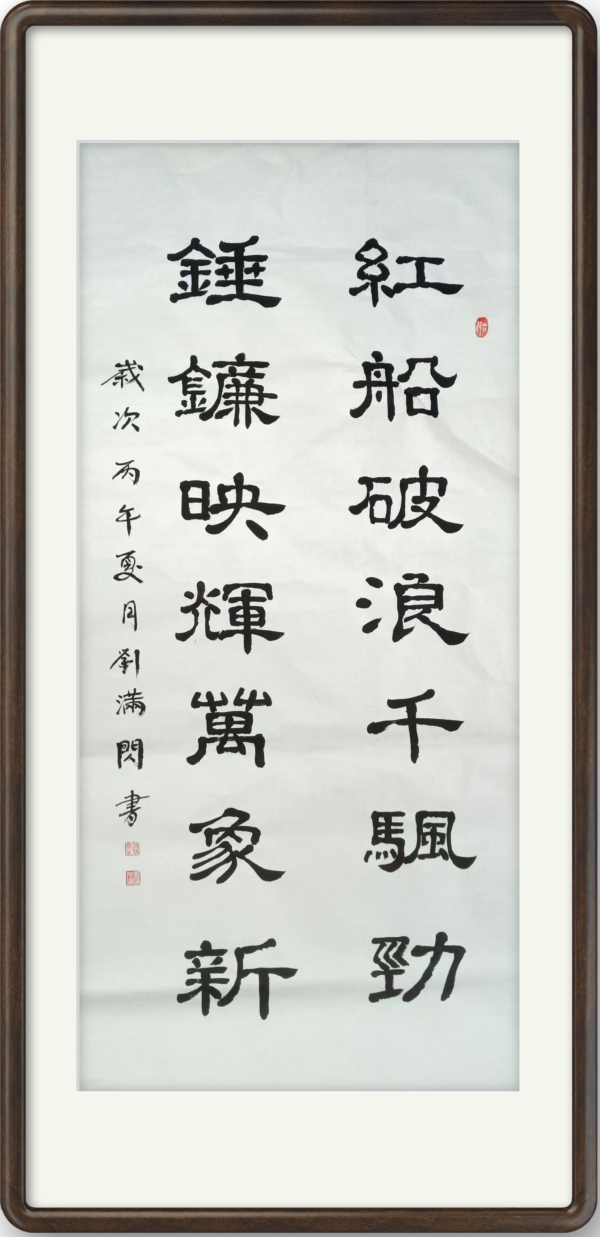 紅船破浪千颿勁
錘鐮映輝萬象新
歲次丙午夏月劉满閃書